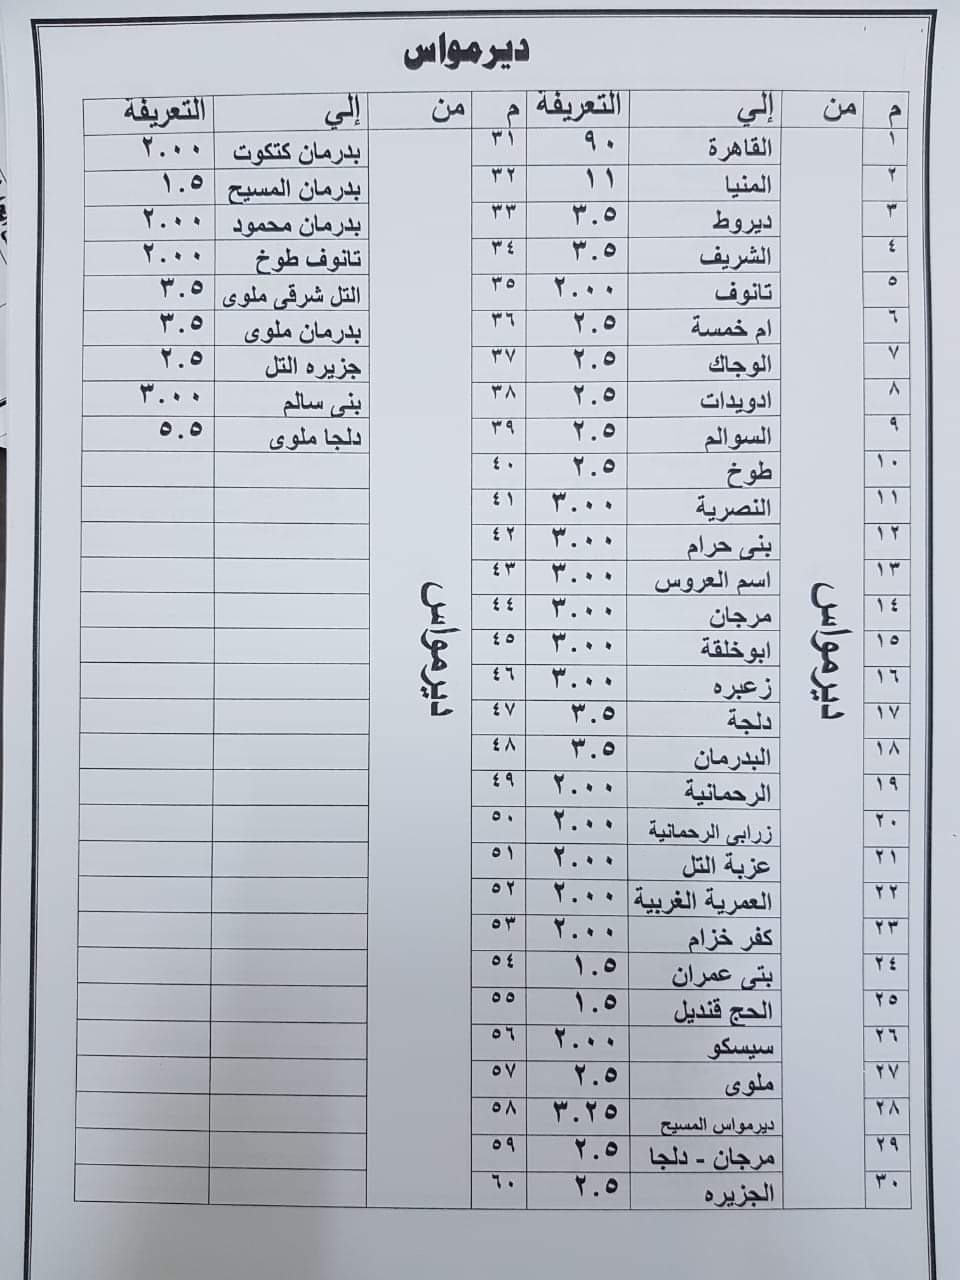 ديرمواس
م من إلي التعريفة م من إلي التعريفة
١ القاهرة ٩٠ ٣١ بدرمان كتكوت ٢.٠٠
٢ المنيا ١١ ٣٢ بدرمان المسيح ١.٥
٣ ديروط ٣.٥ ٣٣ بدرمان محمود ٢.٠٠
٤ الشريف ٣.٥ ٣٤ تانوف طوخ ٢.٠٠
٥ تانوف ٢.٠٠ ٣٥ التل شرقى ملوى ٣.٥
٦ ام خمسة ٢.٥ ٣٦ بدرمان ملوى ٣.٥
٧ الوجاك ٢.٥ ٣٧ جزيره التل ٢.٥
٨ ادويدات ٢.٥ ٣٨ بنى سالم ٣.٠٠
٩ السوالم ٢.٥ ٣٩ دلجا ملوى ٥.٥
١٠ طوخ ٢.٥ ٤٠
١١ النصرية ٣.٠٠ ٤١
١٢ بنى حرام ٣.٠٠ ٤٢
١٣ اسم العروس ٣.٠٠ ٤٣
١٤ مرجان ٣.٠٠ ٤٤
١٥ ابوخلقة ٣.٠٠ ٤٥
١٦ زعبره ٣.٠٠ ٤٦
ديرمواس ديرمواس
١٧ دلجة ٣.٥ ٤٧
١٨ البدرمان ٣.٥ ٤٨
١٩ الرحمانية ٢.٠٠ ٤٩
٢٠ زرابى الرحمانية ٢.٠٠ ٥٠
٢١ عزبة التل ٢.٠٠ ٥١
٢٢ العمرية الغربية ٢.٠٠ ٥٢
٢٣ كفر خزام ٢.٠٠ ٥٣
٢٤ بتى عمران ١.٥ ٥٤
٢٥ الحج قنديل ١.٥ ٥٥
٢٦ سيسكو ٢.٠٠ ٥٦
٢٧ ملوى ٢.٥ ٥٧
٢٨ ديرمواس المسيح ٣.٢٥ ٥٨
٢٩ مرجان - دلجا ٢.٥ ٥٩
٣٠ الجزيره ٢.٥ ٦٠